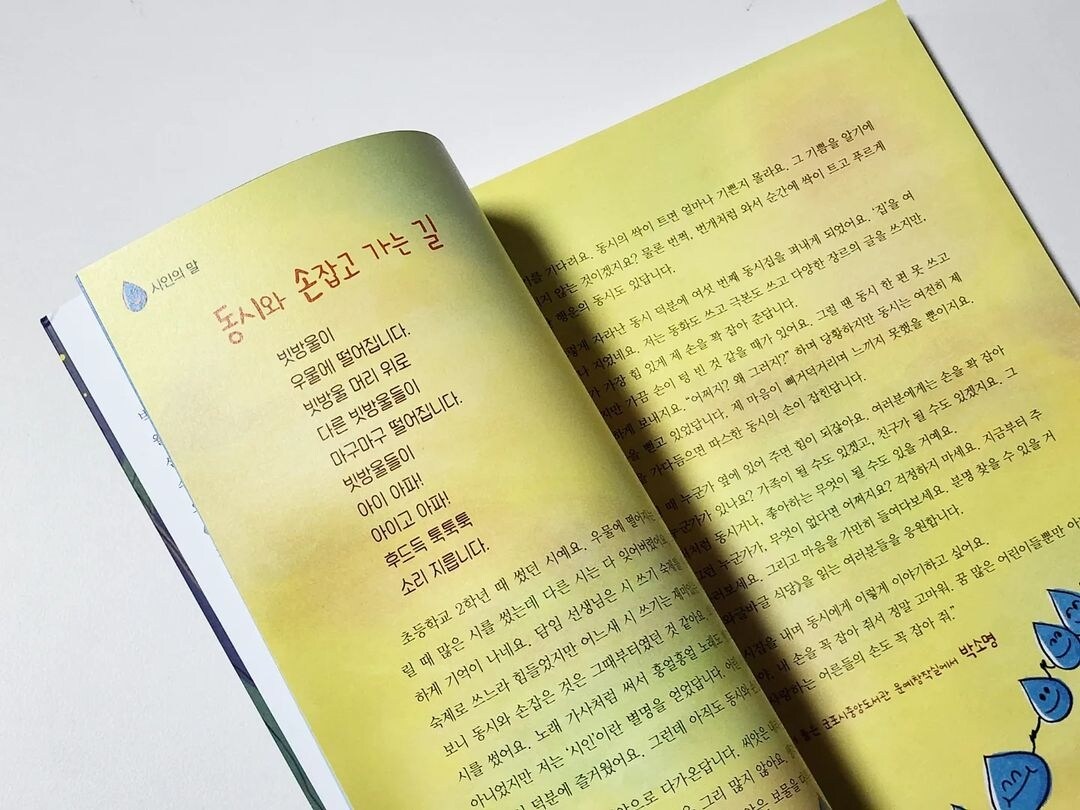 시인의 말
동시와 손잡고 가는 길
빗방울이
우물에 떨어집니다.
빗방울 머리 위로
다른 빗방울들이
마구마구 떨어집니다.
빗방울들이
아이 아파!
아이고 아파!
후드득 툭툭툭
소리 지릅니다.
초등학교 2학년 때 썼던 시예요. 우물에 떨어지는
릴 때 많은 시를 썼는데 다른 시는 다 잊어버렸어요
하게 기억이 나네요. 담임 선생님은 시 쓰기 숙제를
숙제로 쓰느라 힘들었지만 어느새 시 쓰기는 재미있는
보니 동시와 손잡은 것은 그때부터였던 것 같아요.
시를 썼어요. 노래 가사처럼 써서 흥얼흥얼 노래도
아니었지만 저는 '시인'이란 별명을 얻었답니다. 어린
덕분에 즐거웠어요. 그런데 아직도 동시와
앞으로 다가온답니다. 씨앗은
요. 그리 많지 않아요.
은 보물을
를 기다려요. 동시의 싹이 트면 얼마나 기쁜지 몰라요. 그 기쁨을 알기에
지 않는 것이겠지요? 물론 번쩍, 번개처럼 와서 순간에 싹이 트고 푸르게
행운의 동시도 있답니다.
렇게 자라난 동시 덕분에 여섯 번째 동시집을 펴내게 되었어요. '집'을 여
나 지었네요. 저는 동화도 쓰고 극본도 쓰고 다양한 장르의 글을 쓰지만,
가 가장 힘 있게 제 손을 꽉 잡아 준답니다.
지만 가끔 손이 텅 빈 것 같을 때가 있어요. 그럴 때 동시 한 편 못 쓰고
하게 보내지요. "어쩌지? 왜 그러지?" 하며 당황하지만 동시는 여전히 제
을 뻗고 있었답니다. 제 마음이 삐거덕거리며 느끼지 못했을 뿐이지요.
을 가다듬으면 따스한 동시의 손이 잡힌답니다.
때 누군가 옆에 있어 주면 힘이 되잖아요. 여러분에게는 손을 꽉 잡아
누군가가 있나요? 가족이 될 수도 있겠고, 친구가 될 수도 있겠지요. 그
처럼 동시거나, 좋아하는 무엇이 될 수도 있을 거예요.
런 누군가가, 무엇이 없다면 어쩌지요? 걱정하지 마세요. 지금부터 주
러보세요. 그리고 마음을 가만히 들여다보세요. 분명 찾을 수 있을 거
와글바글 식당》을 읽는 여러분들을 응원합니다.
시집을 내며 동시에게 이렇게 이야기하고 싶어요.
야, 내 손을 꼭 잡아 줘서 정말 고마워. 꿈 많은 어린이들뿐만 아
사랑하는 어른들의 손도 꼭 잡아 줘."
군포시중앙도서관 문예창작실에서 박소명